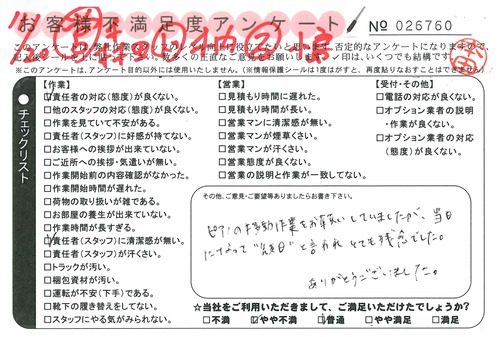 お客様不満足度アンケート
No 026760
このアンケートは、弊社作業スタッフのレベル向上に役立てたいと思います。否定的なアンケートになりますので、
※このアンケートは、アンケート目的以外には使用いたしません。(※情報保護シールは1度はがすと、再度貼りなおすことはできません。)
チェックリスト
【作業】
責任者の対応(態度)が良くない。
□他のスタッフの対応(態度)が良くない。
□作業を見ていて不安がある。
□責任者(スタッフ)に好感が持てない。
□お客様への挨拶が出来ていない。
□ご近所への挨拶・気遣いが無い。
□作業開始前の内容確認がなかった。
□作業開始時間が遅れた。
□荷物の取り扱いが雑である。
□お部屋の養生が出来ていない。
□作業時間が長すぎる。
責任者(スタッフ)に清潔感が無い。
□責任者(スタッフ)が汗さい。
□トラックが汚い。
□梱包資材が汚い。
□運転が不安(下手)である。
□靴下の履き替えをしてない。
□スタッフにやる気がみられない。
【営業】
□見積もり時間に遅れた。
□見積もり時間が長い。
□営業マンに清潔感が無い。
□営業マンが煙草くさい。
□営業マンが汗さい。
□営業態度が良くない。
□営業の説明と作業が一致してない。
【受付・その他】
□電話の対応が良くない。
□オプション業者の説明
・作業が良くない。
□オプション業者の対応
(態度)が良くない。
その他、ご意見・ご要望等ありましたらお書き下さい。
ピアノの移動作業をお願いしていましたが、当日
になって"
"と言われ とても残念でした。
ありがとうございました。
☆当社をご利用いただきまして、ご満足いただけたでしょうか?
□不満 □やや不満 普通 □やや満足 □満足